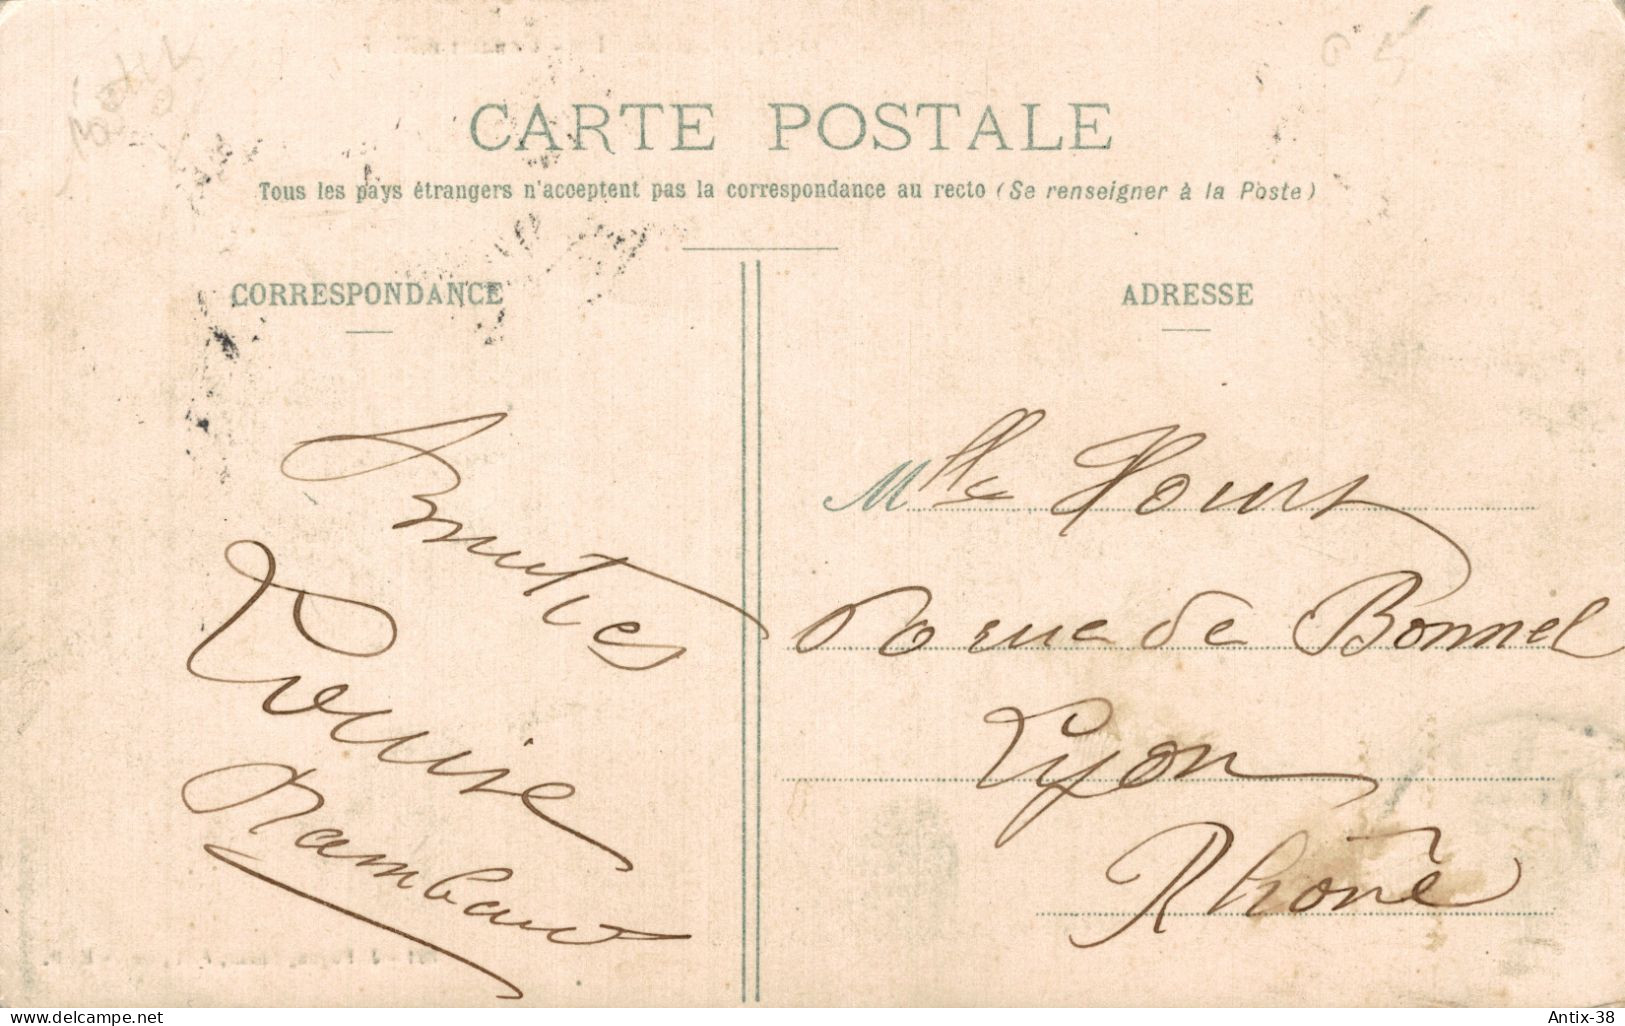 CARTE POSTALE
Tous les pays étrangers n'acceptent pas la correspondance au recto (Se renseigner à la Poste)
CORRESPONDANCE
Amities
Louise
Rambaud
ADRESSE
Mlle
rue de Bonnel
Lyon
Rhône
www.delcampe.net
Antix-38